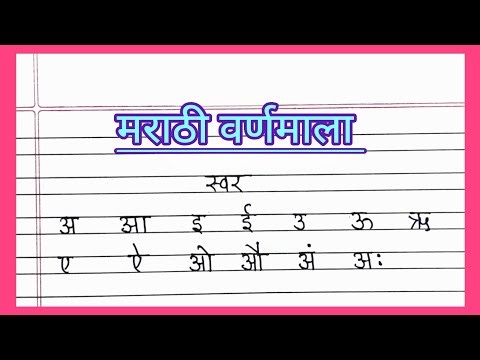 मराठी वर्णमाला
स्वर
अ आ इ ई उ ऊ ऋ
ए ऐ ओ औ अं अः